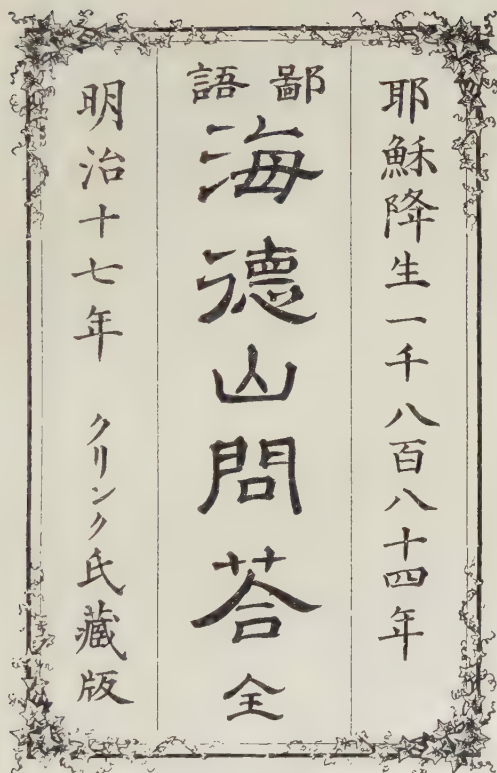 耶穌降生一千八百八十四年
鄙語
海德山問荅全
明治十七年 クリンク氏藏版